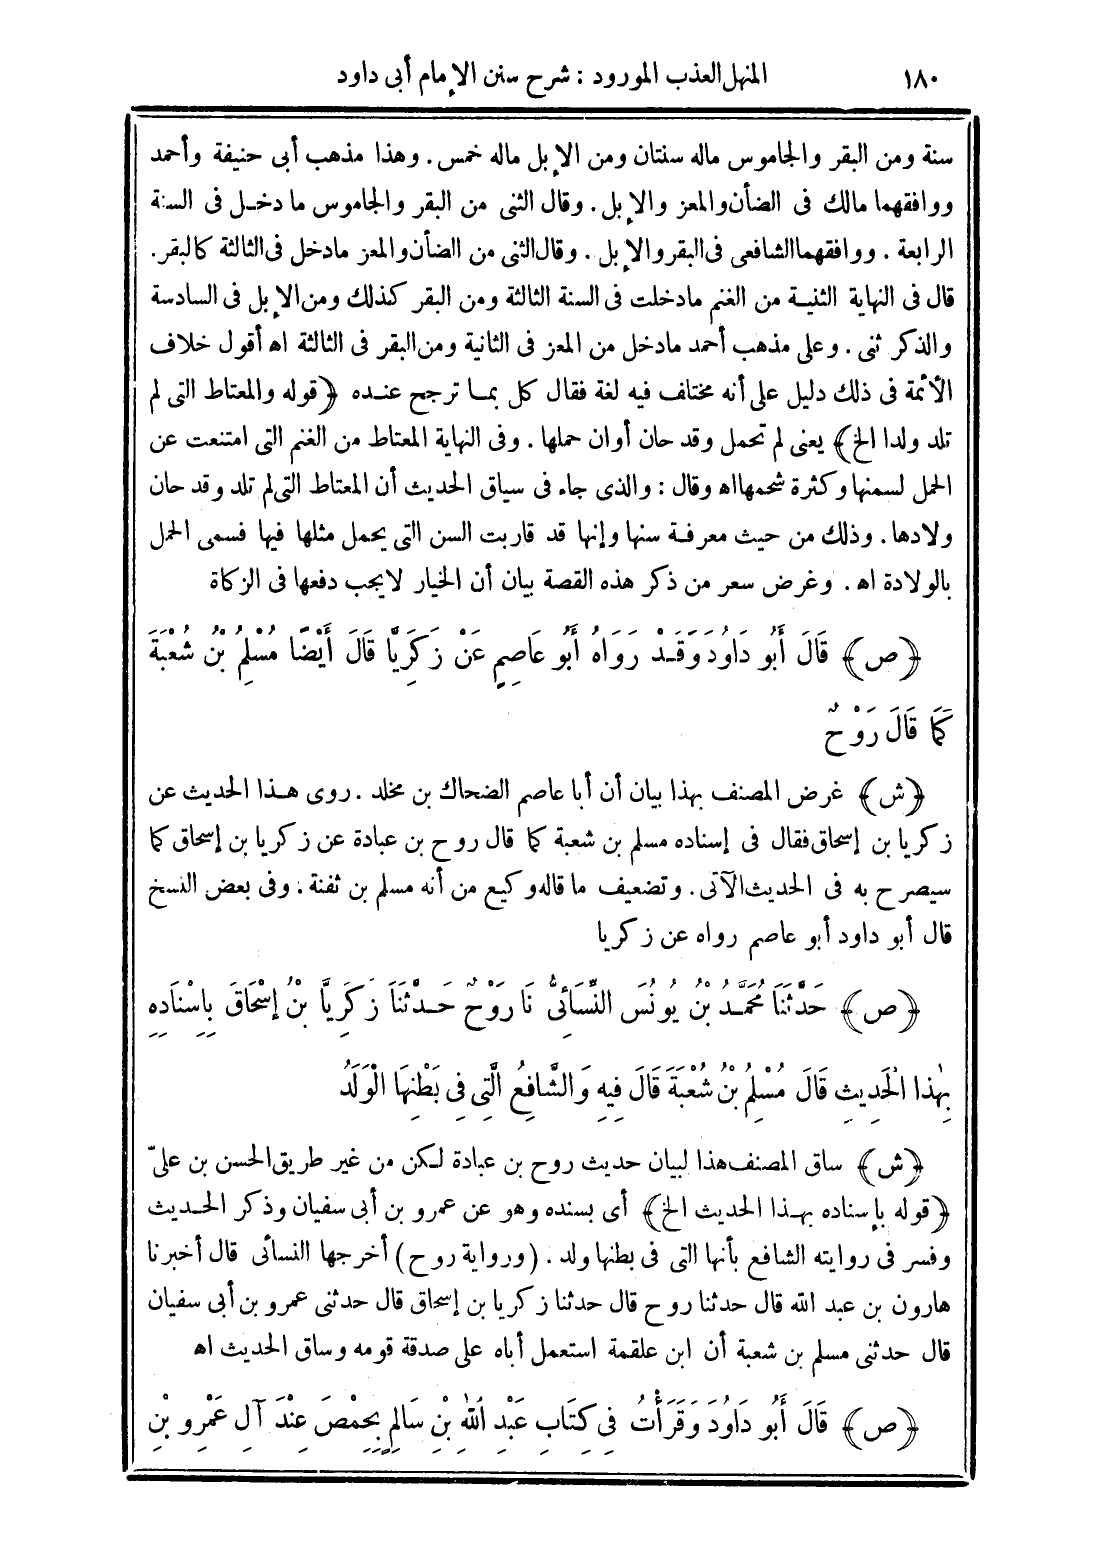 ١٨٠ المنهل العذب المورود : شرح سنن الإمام أبى داود
سنة ومن البقر والجاموس ماله سنتان ومن الإبل ماله خمس. وهذا مذهب أبى حنيفة وأحمد
ووافقهما مالك فى الضأن والمعز والإبل. وقال الثنى من البقر والجاموس ما دخل فى السنة
الرابعة . ووافقهما الشافعى فى البقر والإبل . وقال الثنى من الضأن والمعز مادخل فى الثالثة كالبقر.
قال فى النهاية الثنية من الغنم مادخلت فى السنة الثالثة ومن البقر كذلك ومن الإبل فى السادسة
والذكر ثنى . وعلى مذهب أحمد مادخل من المعز فى الثانية ومن البقر فى الثالثة اه أقول خلاف
الأئمة فى ذلك دليل على أنه مختلف فيه لغة فقال كل بما ترجح عنده ﴿قوله والمعتاط التى لم
تلد ولدا الخ﴾ يعنى لم تحمل وقد حان أوان حملها . وفى النهاية المعتاط من الغنم التى امتنعت عن
الحمل لسمنها وكثرة شحمها اه وقال : والذى جاء فى سياق الحديث أن المعتاط التى لم تلد وقد حان
ولادها . وذلك من حيث معرفة سنها وإنها قد قاربت السن التى يحمل مثلها فيها فسمى الحمل
بالولادة اه . وغرض سعر من ذكر هذه القصة بيان أن الخيار لايجب دفعها فى الزكاة
﴿ص﴾ قَالَ أَبُو دَاوُدَ وَقَدْ رَوَاهُ أَبُو عَاصِمٍ عَنْ زَكَرِيَّا قَالَ أَيْضًا مُسْلِمُ بْنُ شُعْبَةَ
كَمَا قَالَ رَوْحٌ
﴿ش﴾ غرض المصنف بهذا بيان أن أبا عاصم الضحاك بن مخلد . روى هذا الحديث عن
زكريا بن إسحاق فقال فى إسناده مسلم بن شعبة كما قال روح بن عبادة عن زكريا بن إسحاق كما
سيصرح به فى الحديث الآتى . وتضعيف ما قاله وكيع من أنه مسلم بن ثفنة . وفى بعض النسخ
قال أبو داود أبو عاصم رواه عن زكريا
﴿ص﴾ حَدَّثَنَا مُحَمَّدُ بْنُ يُونُسَ النَّسَائِىُّ نَا رَوْحٌ حَدَّثَنَا زَكَرِيَّا بْنُ إِسْحَاقَ بِإِسْنَادِهِ
بِهٰذَا الْحَدِيثِ قَالَ مُسْلِمُ بْنُ شُعْبَةَ قَالَ فِيهِ وَالشَّافِعُ الَّتِى فِى بَطْنِهَا الْوَلَدُ
﴿ش﴾ ساق المصنف هذا لبيان حديث روح بن عبادة لكن من غير طريق الحسن بن علىّ
﴿قوله بإسناده بهذا الحديث الخ﴾ أى بسنده وهو عن عمرو بن أبى سفيان وذكر الحديث
وفسر فى روايته الشافع بأنها التى فى بطنها ولد . (ورواية روح) أخرجها النسائى قال أخبرنا
هارون بن عبد الله قال حدثنا روح قال حدثنا زكريا بن إسحاق قال حدثنى عمرو بن أبى سفيان
قال حدثنى مسلم بن شعبة أن ابن علقمة استعمل أباه على صدقة قومه وساق الحديث اه
﴿ص﴾ قَالَ أَبُو دَاوُدَ وَقَرَأْتُ فِى كِتَابِ عَبْدِ اللهِ بْنِ سَالِمٍ بِحِمْصَ عِنْدَ آلِ عَمْرِو بْنِ